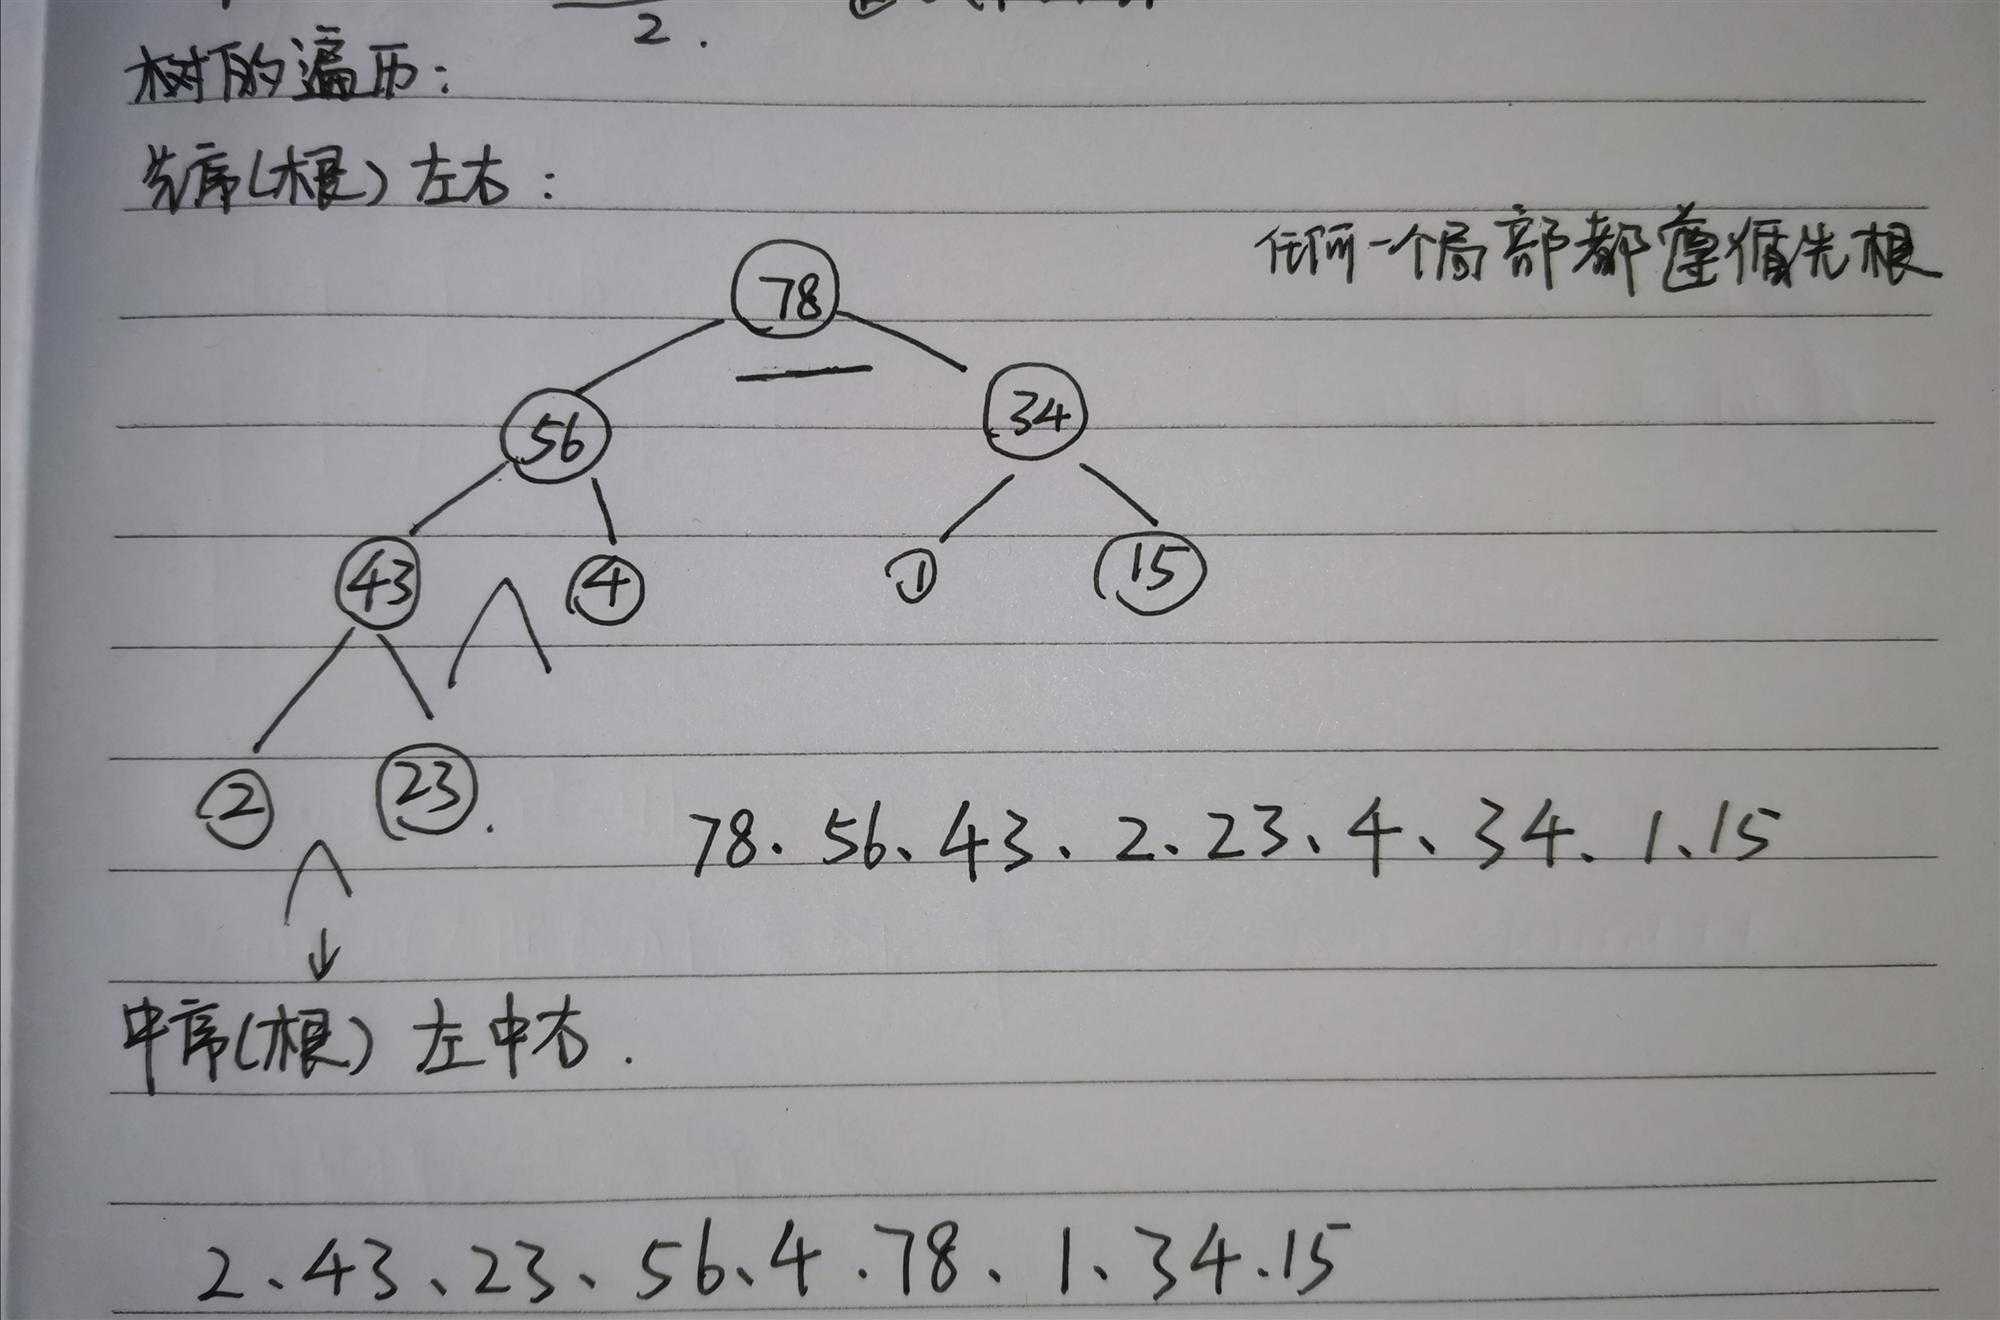 2.
树的遍历:
先序(根)左右:
任何一个局部都遵循先根
78
56 34
43 4 1 15
2 23.
78、56、43、2、23、4、34、1、15
中序(根)左中右.
2、43、23、56、4、78、1、34、15